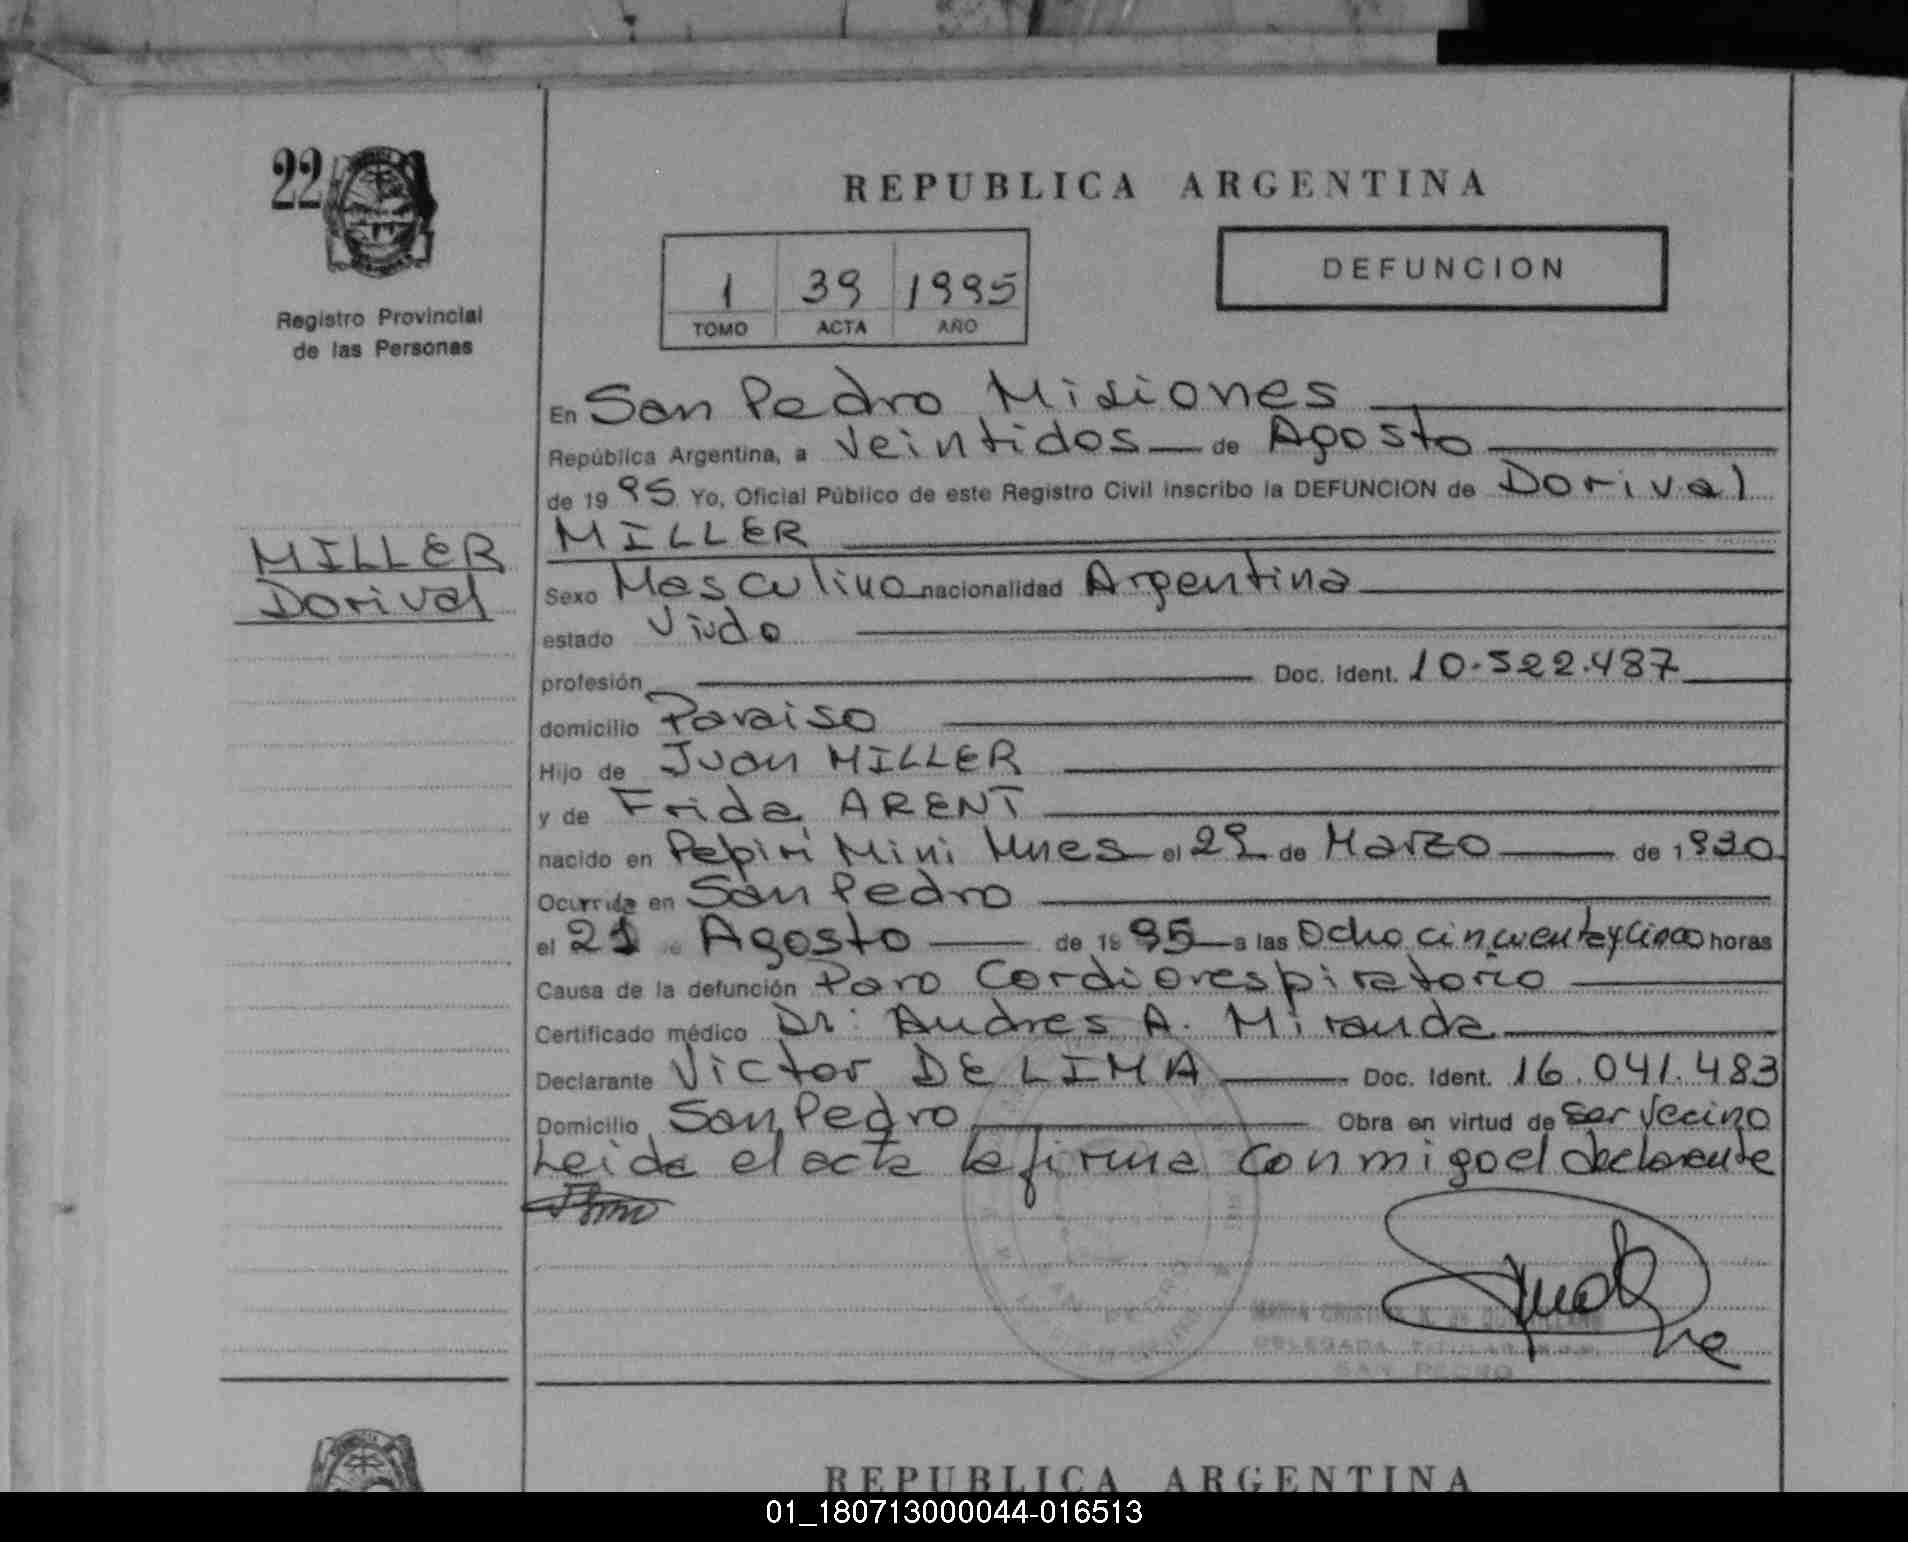 22
Registro Provincial
de las Personas
MILLER
Dorival
REPUBLICA ARGENTINA
1 39 1995
TOMO ACTA AÑO
DEFUNCION
En San Pedro Misiones
República Argentina, a Veintidos de Agosto
de 19 95 Yo, Oficial Público de este Registro Civil inscribo la DEFUNCION de Dorival
MILLER
Sexo Masculino nacionalidad Argentina
estado Viudo
profesión Doc. Ident. 10.522.487
domicilio Paraiso
Hijo de Juan MILLER
y de Frida ARENT
nacido en Pepiri Mini Mnes el 29 de Marzo de 1930
Ocurrida en San Pedro
el 21 de Agosto de 19 95 a las Ocho cincuenta y cinco horas
Causa de la defunción Paro Cardiorespiratorio
Certificado médico Dr: Andres A. Miranda
Declarante Victor DE LIMA Doc. Ident. 16.041.483
Domicilio San Pedro Obra en virtud de ser Vecino
Leida el acta la firma conmigo el declarante
SAN PEDRO
DELEGADA TITULAR
SAN PEDRO
REPUBLICA ARGENTINA
01_180713000044-016513